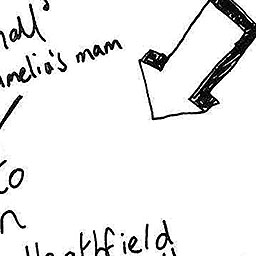 hall
amelia's mam
to
n
Heathfield